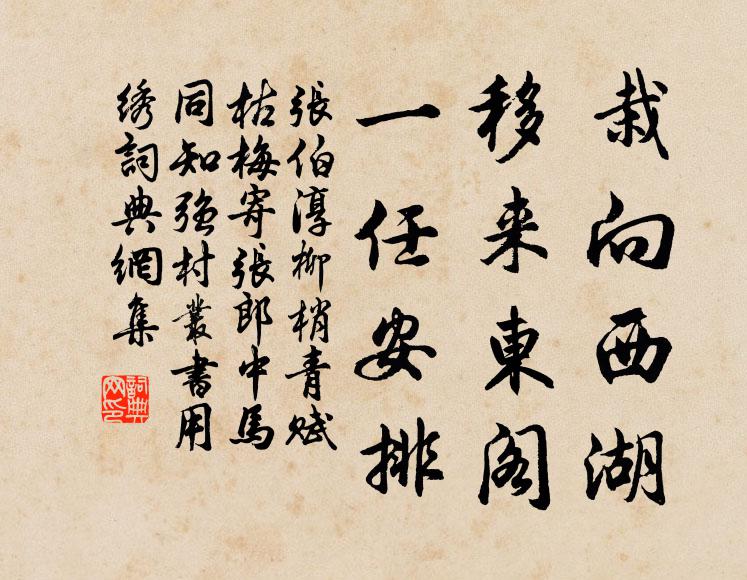 栽向西湖
移来東阁
一任安排
張伯淳柳梢青賦
枯梅寄張郎中馬
同知强村叢書用
绣詞典網集
詞典网印